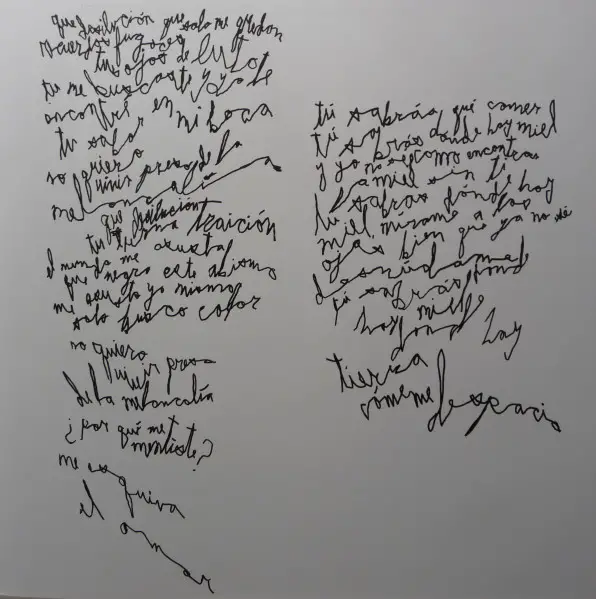 que desilución que solo me quedan
recuerdos fugaces
tus ojos de luto
tu me buscaste y yo te
encontré en mi boca
tu sabor
no quiero
vivir preso de la
melancolía
que desilución
tu fu una traición
el mundo me asusta
que negro este abismo
me asusto yo mismo
solo busco calor
no quiero
vivir preso
de la melancolía
¿por qué me t
mentiste?
me esquiva
el amor
tú sabrás qué comer
tú sabrás donde hay miel
y yo no se como encontrar
la miel sin ti
tu sabras dónde hay
miel mírame a los
ojos bien que ya no sé
desnúdame
tú sabrás dond
hay mielle
dond hay
tierra
cómeme despacio